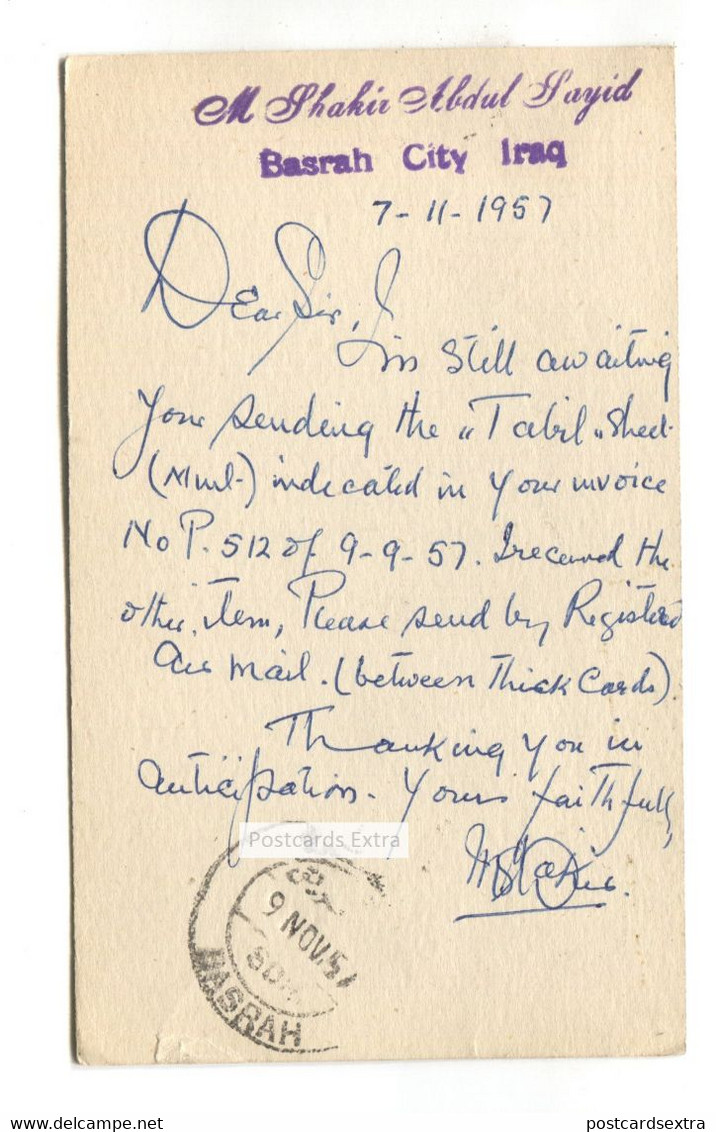 M Shakir Abdul Sayid
Basrah City Iraq
7-11-1957
Dear Sir,
I'm still awaiting
your sending the "Tabil" Sheet
(Mint) indicated in your invoice
No P. 512 of 9-9-57. I received the
other item, Please send by Registered
air mail. (between Thick Cards)
Thanking you in
anticipation. Yours faithfully,
MShakir.
Postcards Extra
9 NOV. 57
BASRAH
www.delcampe.net
postcardsextra